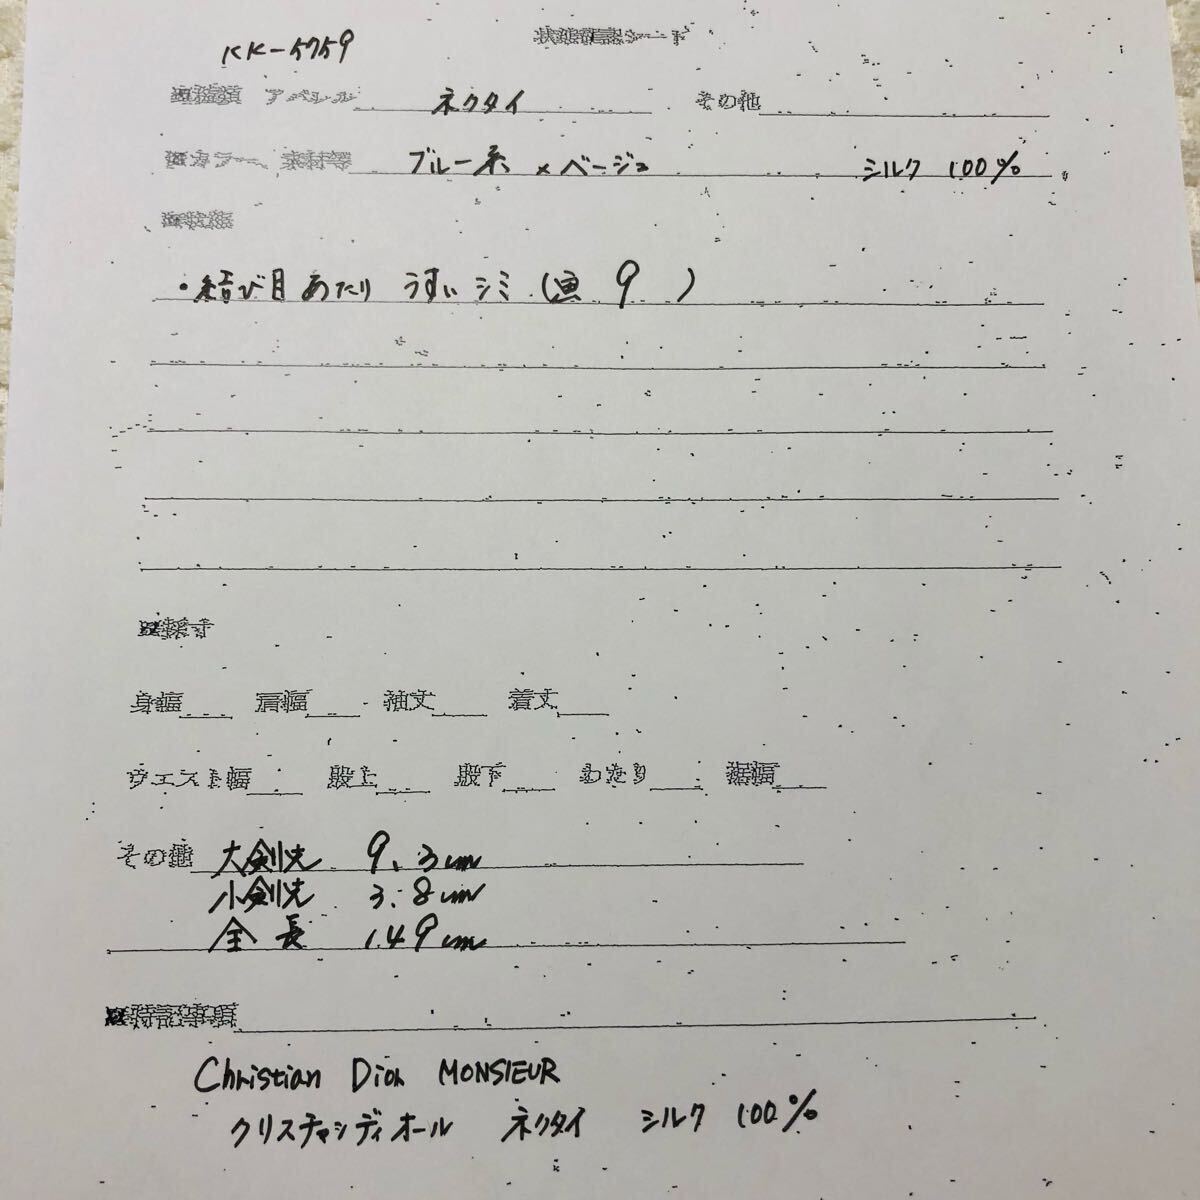 KK-5759
状態確認シート
■種類 アパレル ネクタイ その他
■カラー、素材等 ブルー系 × ベージュ シルク 100%
■状態
・結び目あたり うすいシミ (画 9 )
■採寸
身幅 肩幅 袖丈 着丈
ウエスト幅 股上 股下 わたり 裾幅
その他 大剣先 9.3cm
小剣先 3.8cm
全長 149cm
■特記事項
Christian Dior MONSIEUR
クリスチャンディオール ネクタイ シルク 100%